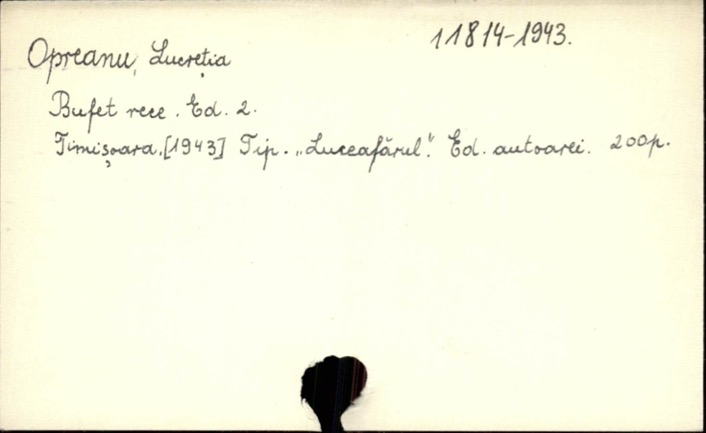 11814-1943.
Opreanu, Lucreția
Bufet rece. Ed. 2.
Timișoara. [1943] Tip. „Luceafărul”. Ed. autoarei. 200p.